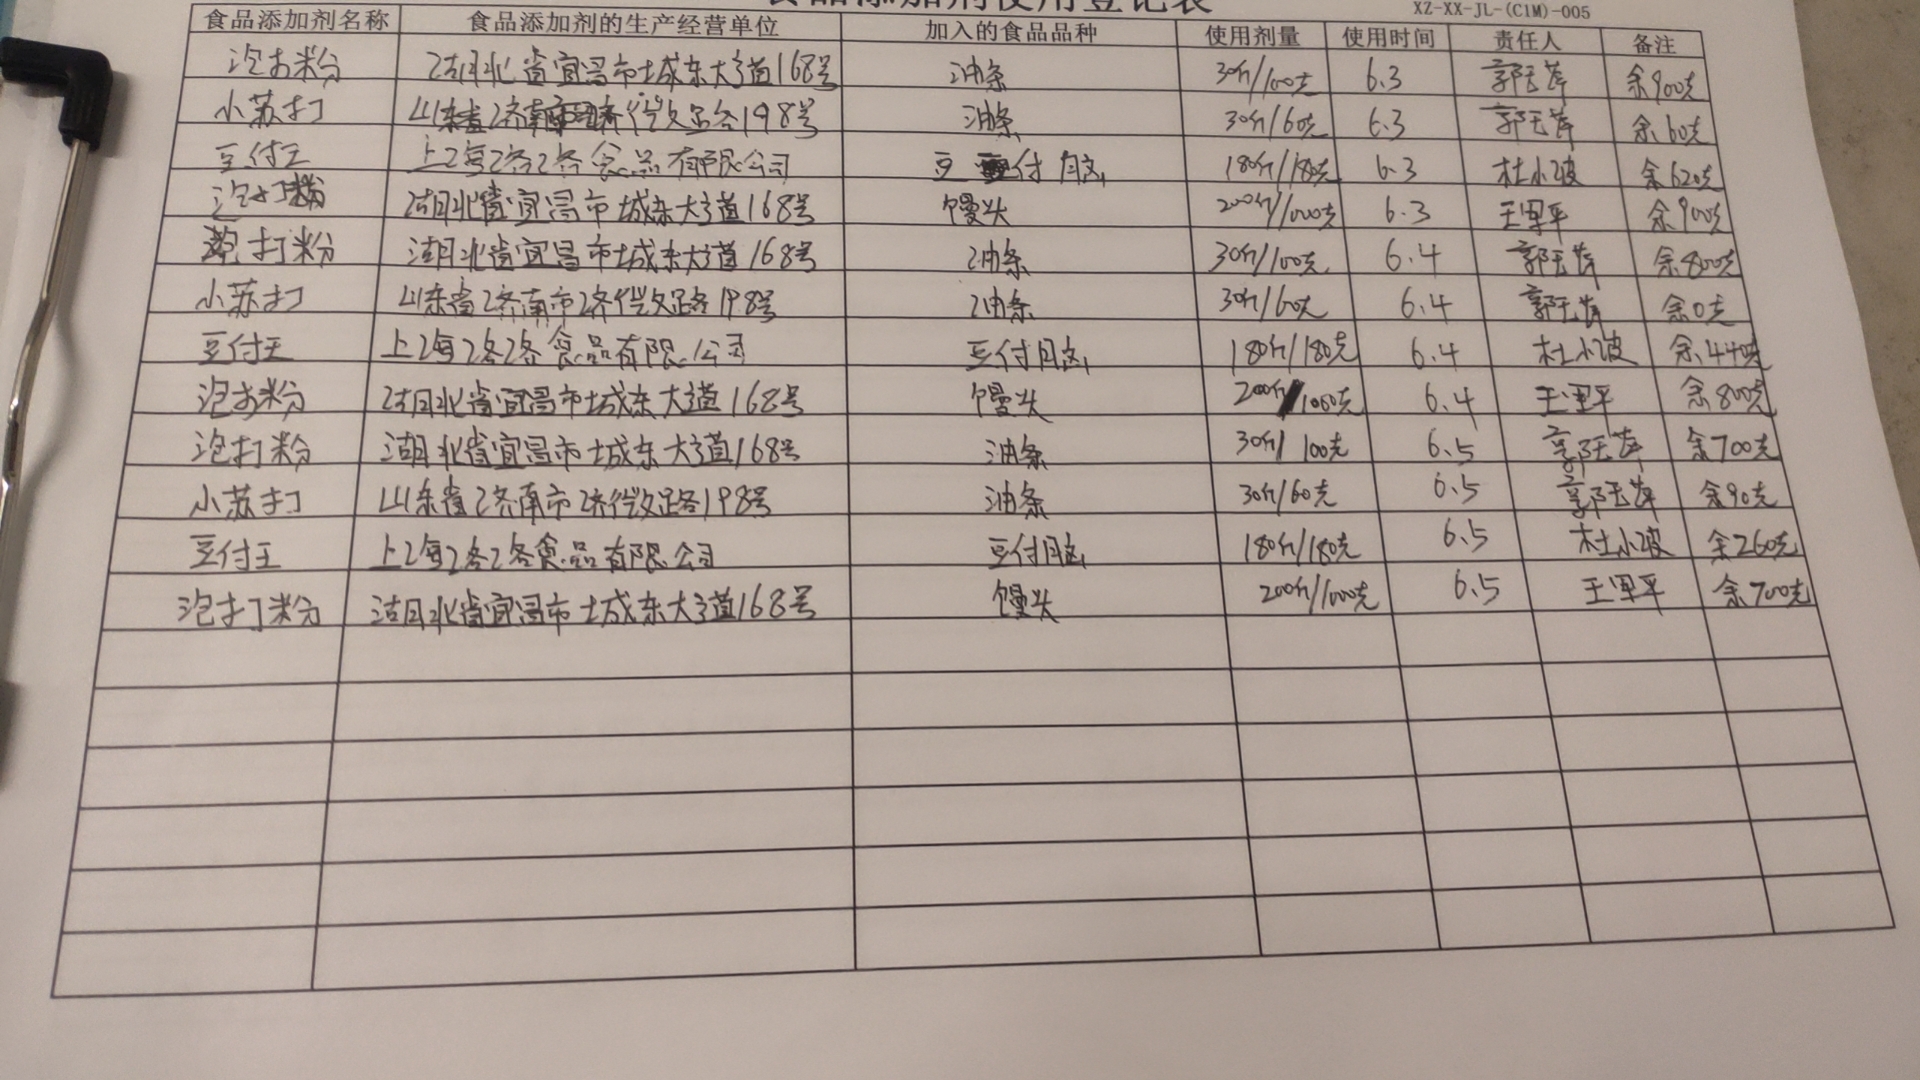 食品添加剂使用登记表
XZ-XX-JL-(CIM)-005
食品添加剂名称 食品添加剂的生产经营单位 加入的食品品种 使用剂量 使用时间 责任人 备注
泡打粉 湖北省宜昌市城东大道168号 油条 30斤/100克 6.3 余900克
小苏打 山东省济南市济微路198号 油条 30斤/60克 6.3 余60克
豆付王 上海 食品有限公司 豆付脑 180斤/180克 6.3 杜小波 余620克
泡打粉 湖北省宜昌市城东大道168号 馒头 200斤/1000克 6.3 王军平 余900克
泡打粉 湖北省宜昌市城东大道168号 油条 30斤/100克 6.4 余800克
小苏打 山东省济南市济微路198号 油条 30斤/60克 6.4 余0克
豆付王 上海 食品有限公司 豆付脑 180斤/180克 6.4 杜小波 余440克
泡打粉 湖北省宜昌市城东大道168号 馒头 200斤/1000克 6.4 王军平 余800克
泡打粉 湖北省宜昌市城东大道168号 油条 30斤/100克 6.5 余700克
小苏打 山东省济南市济微路198号 油条 30斤/60克 6.5 余90克
豆付王 上海 食品有限公司 豆付脑 180斤/180克 6.5 杜小波 余260克
泡打粉 湖北省宜昌市城东大道168号 馒头 200斤/1000克 6.5 王军平 余700克